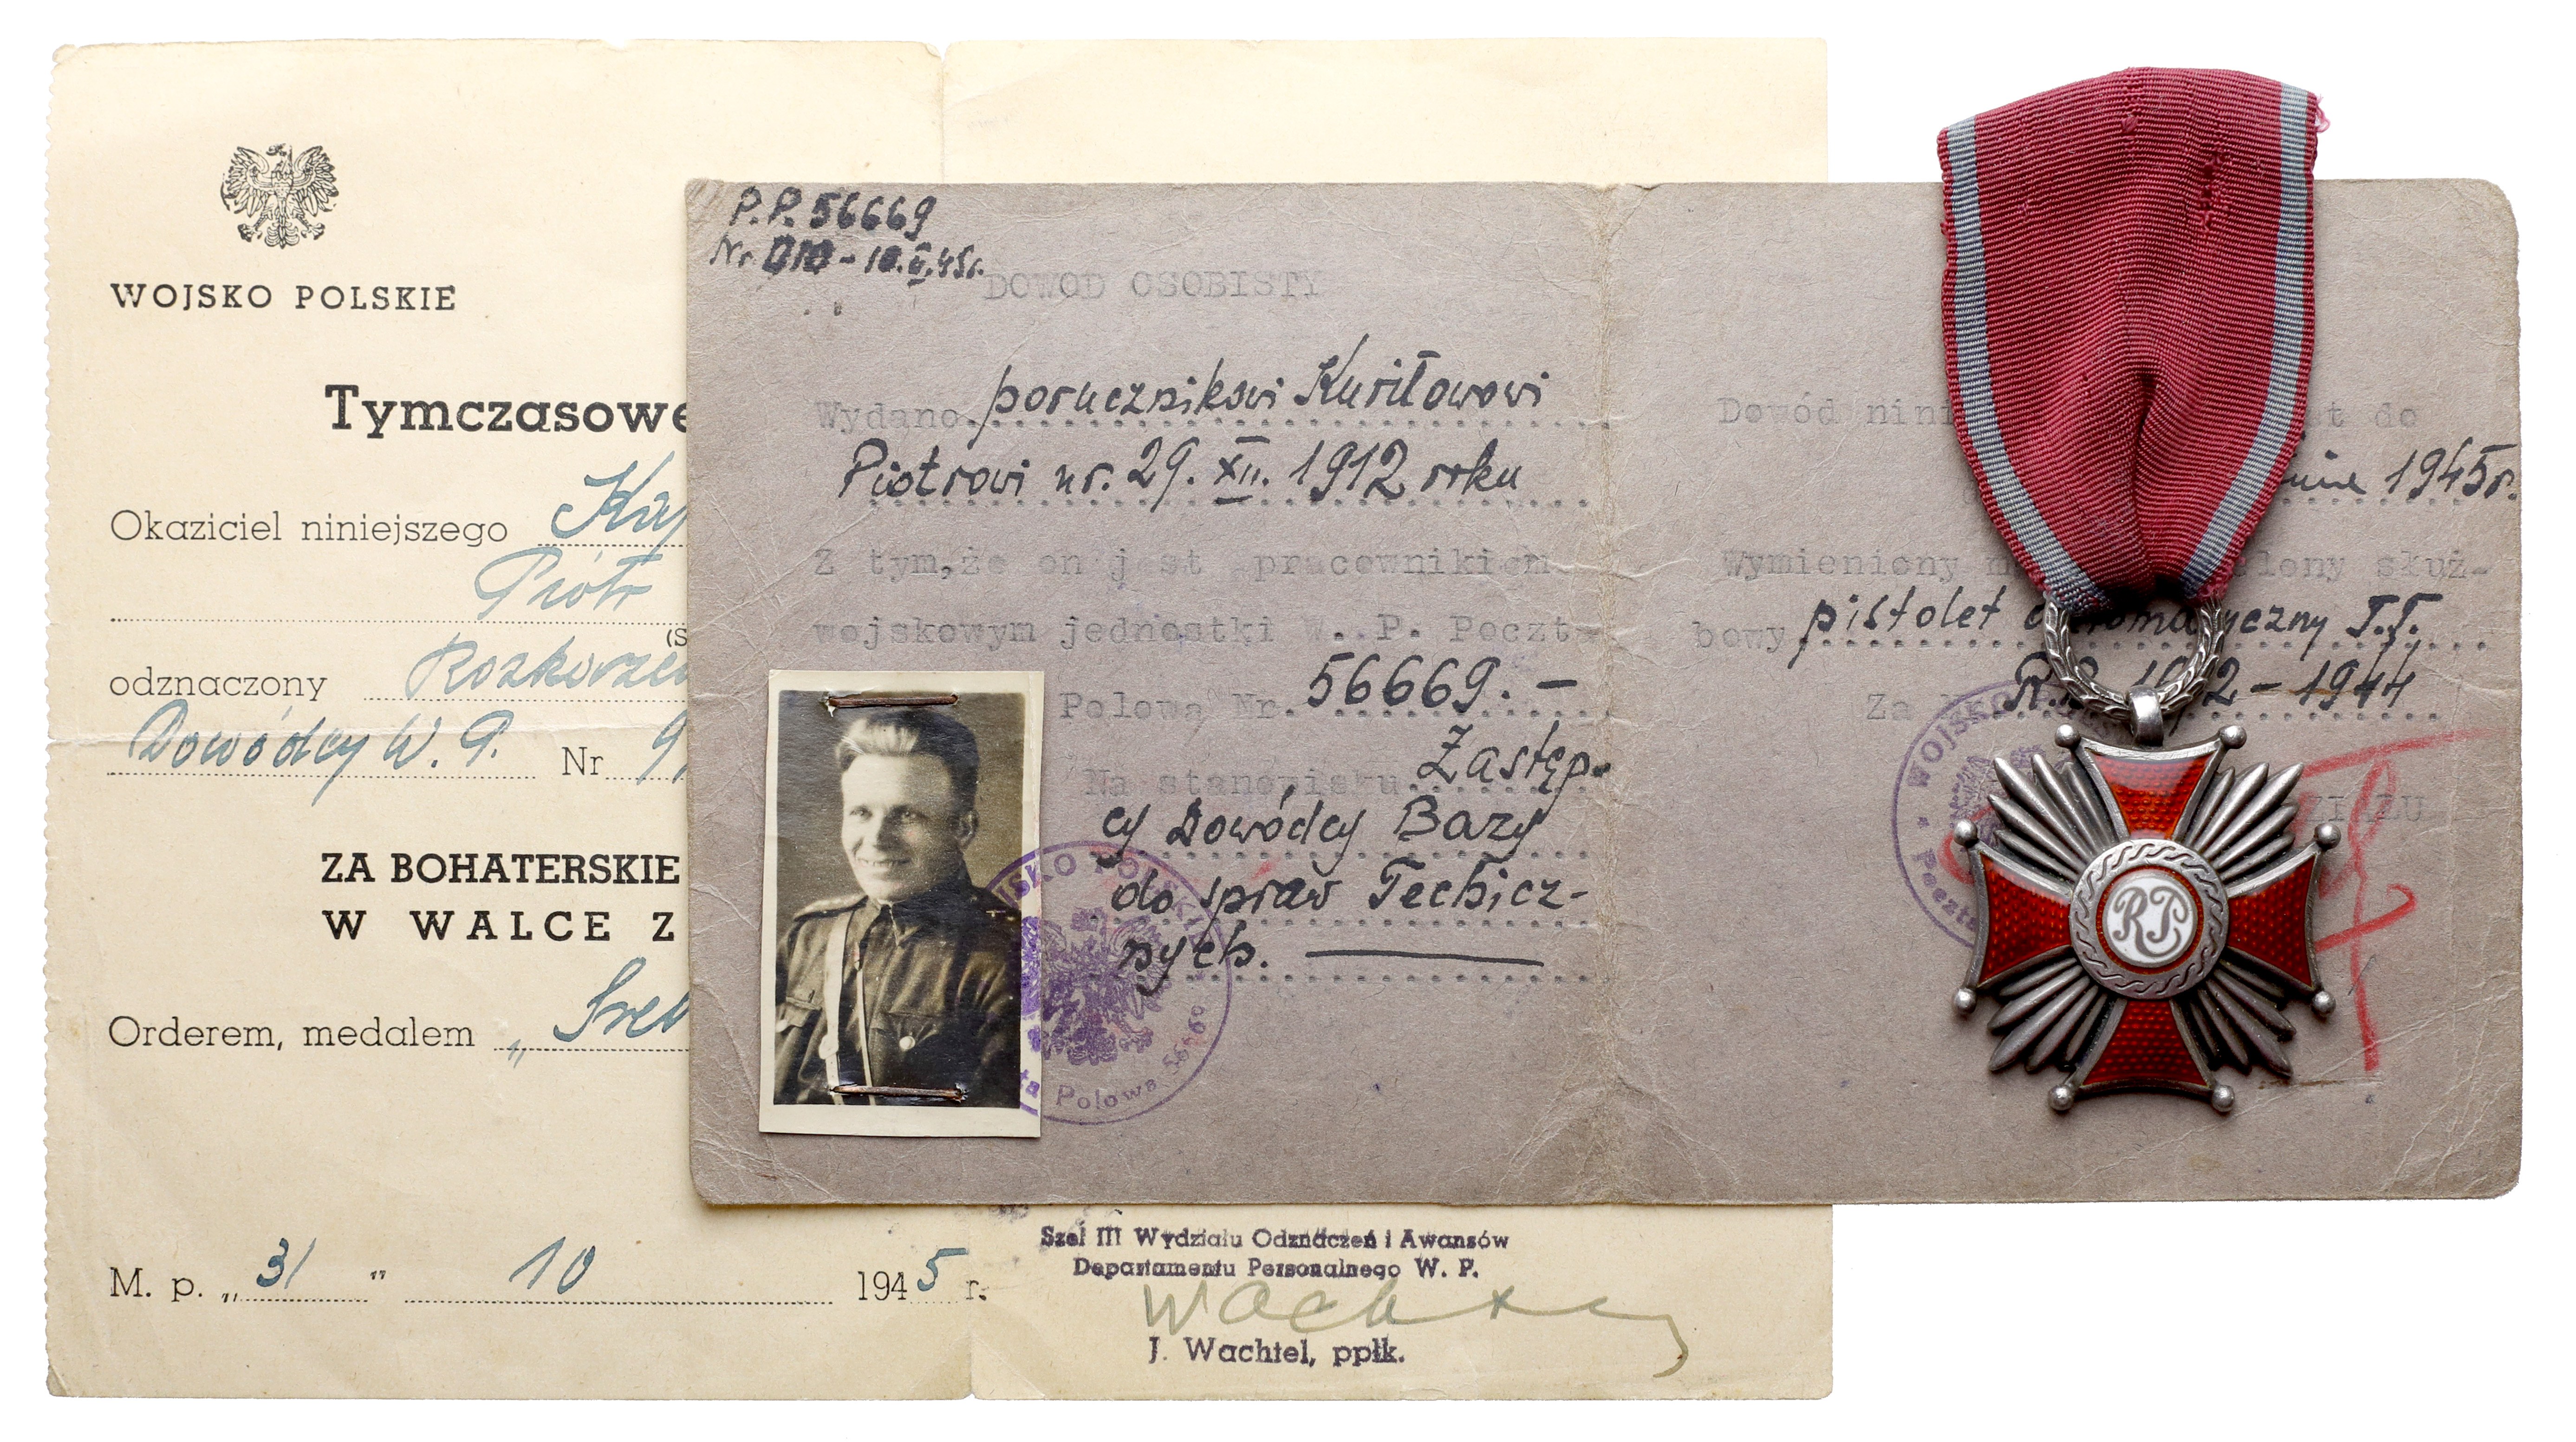 WOJSKO POLSKIE
Tymczasowe
Okaziciel niniejszego
Piotr
odznaczony Rozkazem
Dowódcy W. P. Nr 9
ZA BOHATERSKIE
W WALCE Z
Orderem, medalem „
M. p. „31" 10 1945 r.
Szef III Wydziału Odznaczeń i Awansów
Departamentu Personalnego W. P.
J. Wachtel, ppłk.
P.P. 56669
Nr.
DOWOD OSOBISTY
Wydano porucznikowi Kuriłowowi
Piotrowi ur. 29. XII. 1912 roku
Z tym, że on jest pracownikiem
wojskowym jednostki W. P. Poczta
Polowa Nr. 56669. —
Na stanowisku Zastęp-
cy Dowódcy Bazy
do spraw Technicz-
nych. —
WOJSKO POLSKIE
Poczta Polowa 56669
Dowód do
1945r.
Wymieniony służ-
bowy pistolet automatyczny T.T.
Za 1944
WOJSKO
Poczta
RP